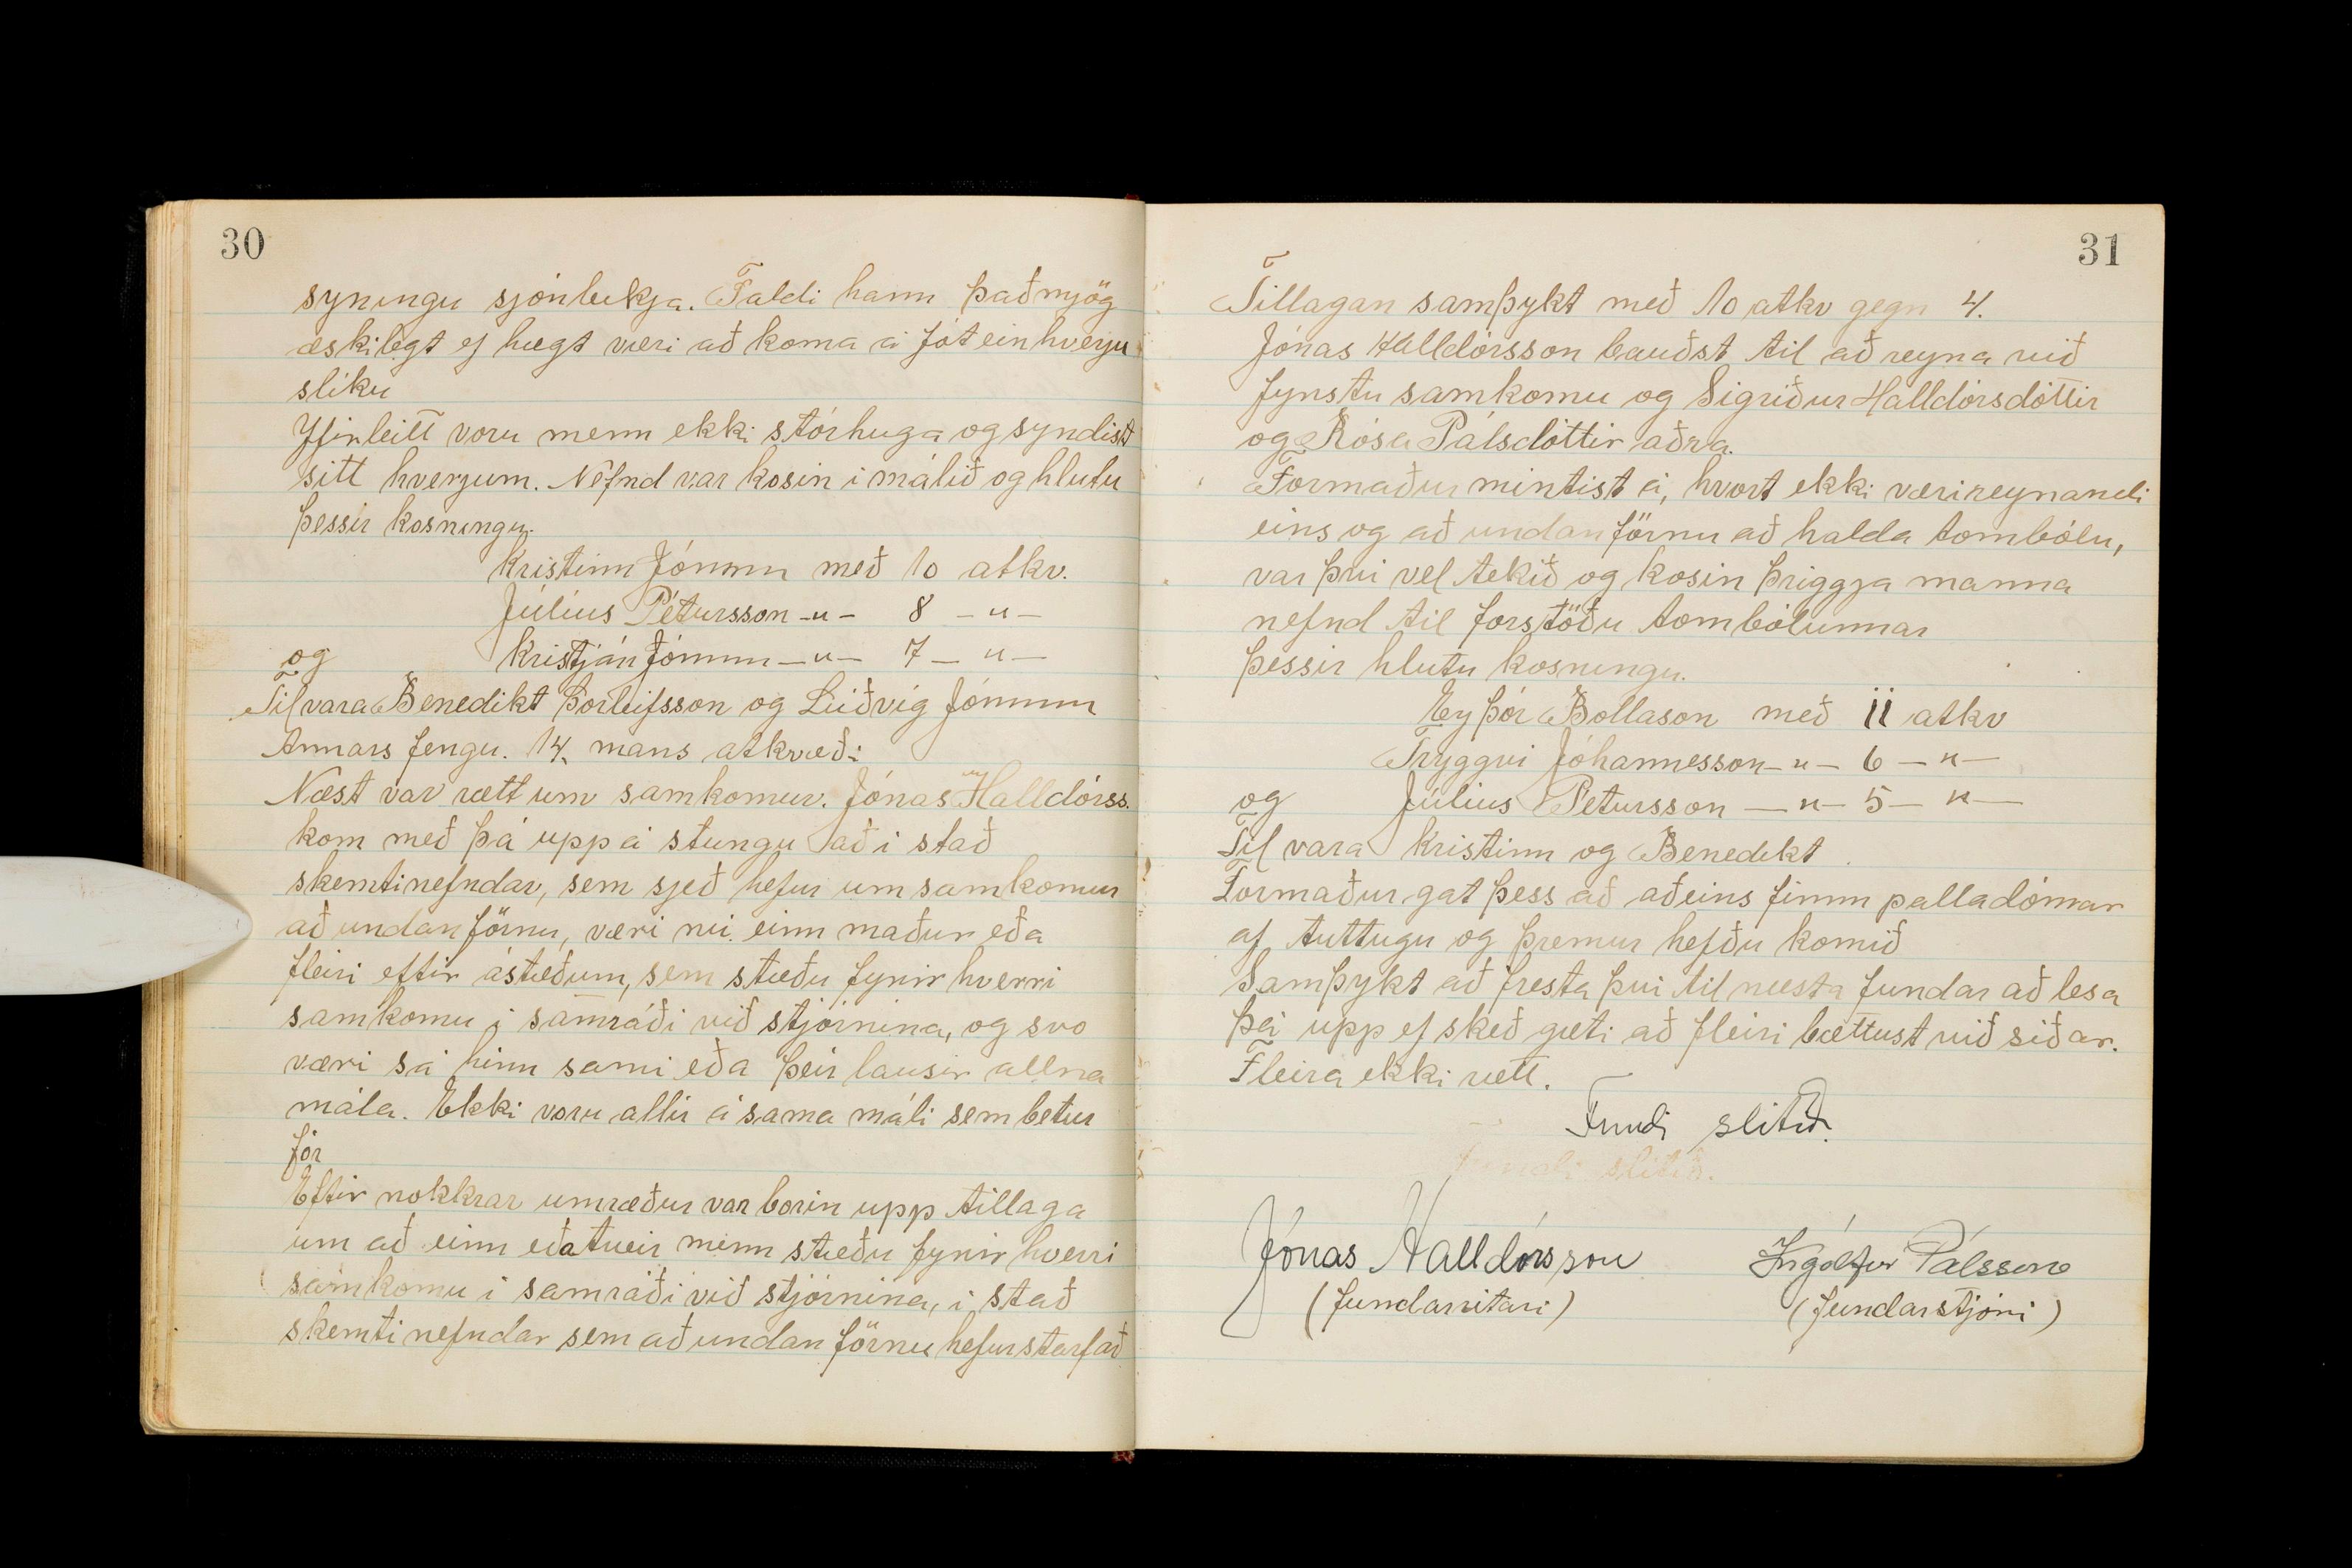 30
syningu sjónleikja. Taldi hann það mjög
æskilegt ef hægt væri að koma á fót einhverju
slíku
Yfirleitt voru menn ekki stórhuga og syndist
sitt hverjum. Nefnd var kosin í málið og hlutu
þessir kosningu.
Kristinn Jónsson með 10 atkv.
Júlíus Pétursson -"- 8 -"-
og Kristján Jónsson -"- 7 -"-
Til vara Benedikt Þorleifsson og Lúðvíg Jónsson
Annars fengu. 14. mans atkvæði
Næst var rætt um samkomur. Jónas Halldórss.
kom með þá uppá stungu að í stað
skemtinefndar, sem sjeð hefur um samkomur
að undanförnu, væri nú einn maður eða
fleiri eftir ástæðum, sem stæðu fyrir hverri
samkomu í samráði við stjórnina, og svo
væri sá hinn sami eða þeir lausir allra
mála. Ekki voru allir á sama máli sem betur
fór
Eftir nokkrar umræður var borin upp tillaga
um að einn eða tveir menn stæðu fyrir hverri
samkomu í samráði við stjórnina, í stað
skemtinefndar sem að undanförnu hefur starfað
31
Tillagan samþykt með 10 atkv gegn 4.
Jónas Halldórsson bauðst til að reyna við
fyrstu samkomu og Sigríður Halldórsdóttir
og Rósa Pálsdóttir aðra.
Formaður mintist á, hvort ekki væri reynandi
eins og að undanförnu að halda tombólu,
var því vel tekið og kosin þriggja manna
nefnd til forstöðu tombólunnar
Þessir hlutu kosningu.
Eyþór Bollason með 11 atkv
Tryggvi Jóhannesson -"- 6 -"-
og Júlíus Pétursson -"- 5 -"-
Til vara Kristinn og Benedikt
Formaður gat þess að aðeins fimm palladómar
af tuttugu og þremur hefðu komið
Samþykt að fresta því til næsta fundar að lesa
þá upp ef skeð gæti að fleiri bættust við síðar.
Fleira ekki rætt.
Fundi slitið.
Fundi slitið.
Jónas Halldórsson Ingólfur Pálsson
(fundarritari) (fundarstjóri)